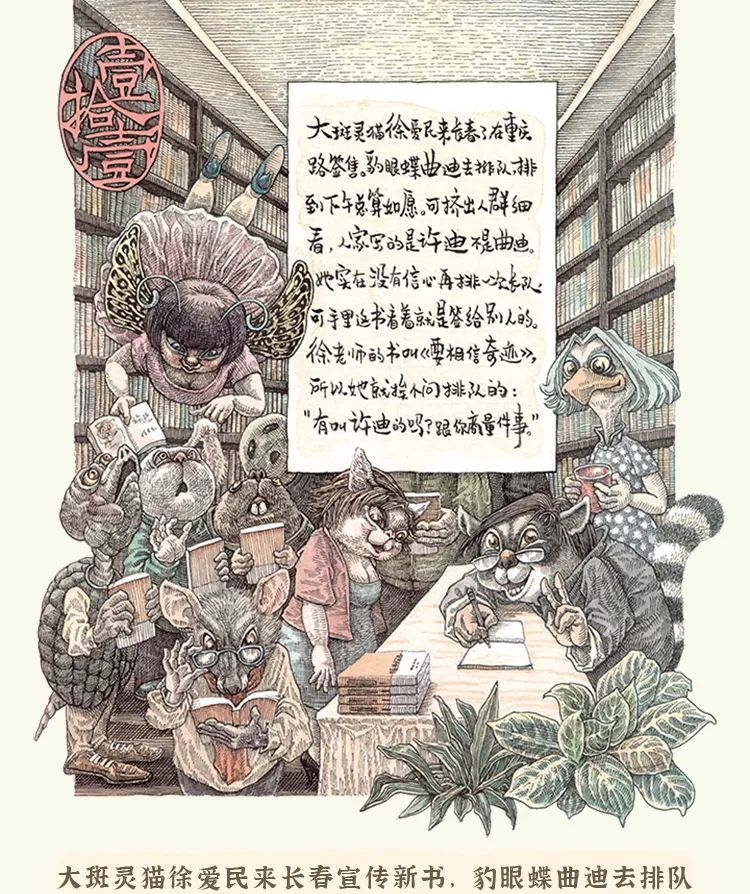 壹拾壹
大斑灵猫徐爱民来长春了在重庆
路签售。豹眼蝶曲迪去排队,排
到下午总算如愿。可挤出人群细
看,人家写的是许迪不是曲迪。
她实在没有信心再排一次长队,
可手里这书看着就是签给别人的。
徐老师的书叫《要相信奇迹》,
所以她就挨个问排队的:
“有叫许迪的吗?跟你商量件事。”
大斑灵猫徐爱民来长春宣传新书,豹眼蝶曲迪去排队